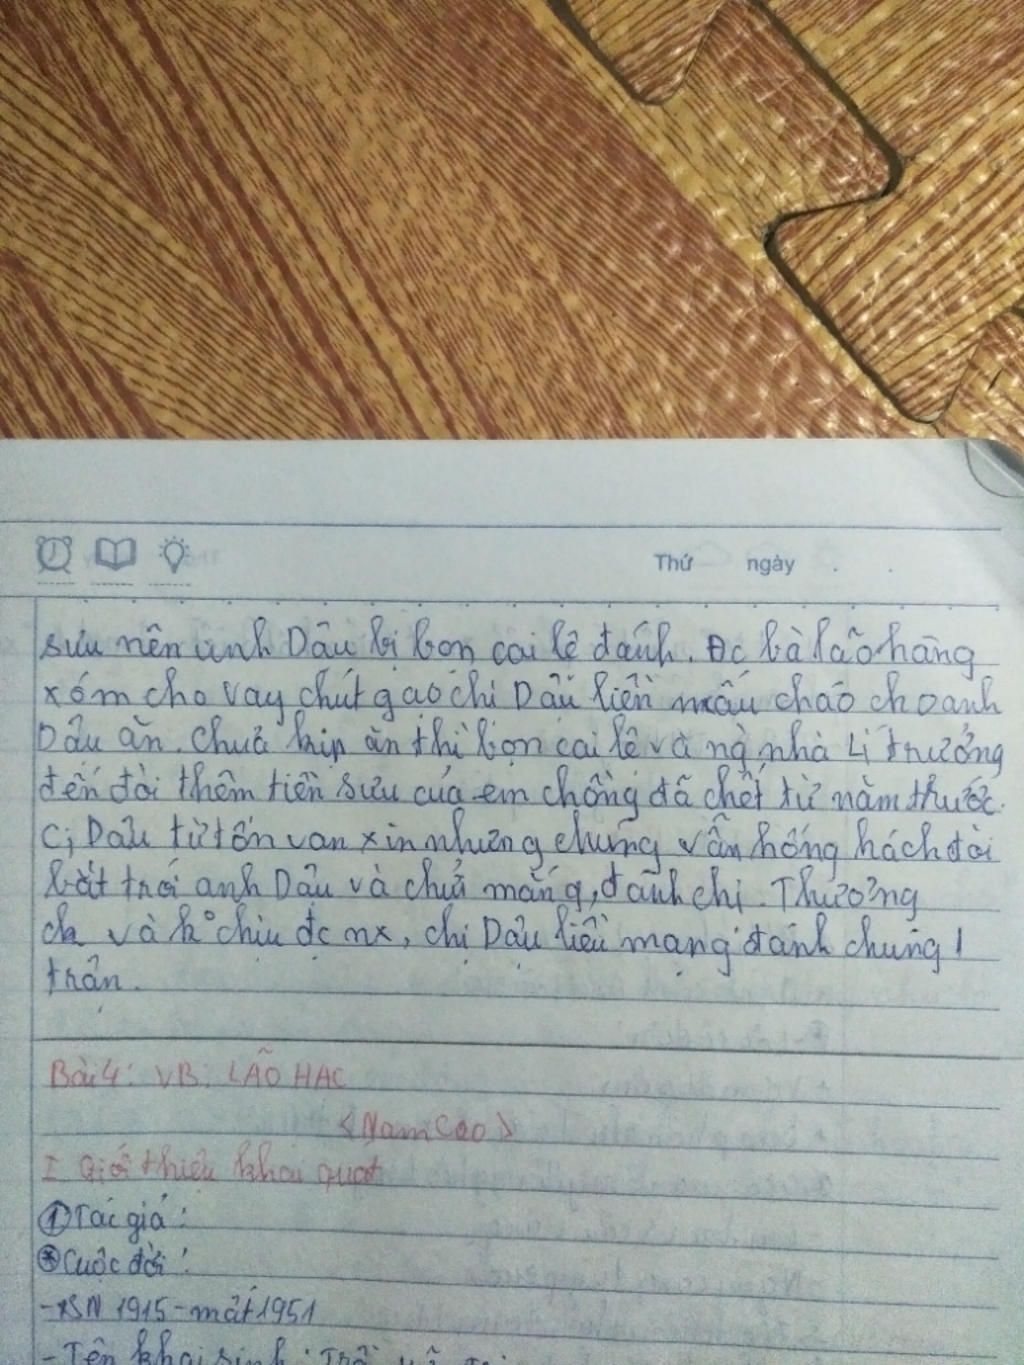 Thứ ngày . .
sưu nên anh Dậu bị bọn cai lệ đánh. Đc bà lão hàng
xóm cho vay chút gạo chị Dậu liền nấu cháo cho anh
Dậu ăn. Chưa kịp ăn thì bọn cai lệ và ng nhà Lí trưởng
đến đòi thêm tiền sưu của em chồng đã chết từ năm trước.
Cị Dậu từ tốn van xin nhưng chúng vẫn hống hách đòi
bắt trói anh Dậu và chửi mắng, đánh chị. Thương
ck và k° chịu đc nx, chị Dậu liều mạng đánh chúng 1
trận.
Bài 4: VB: LÃO HẠC
<Nam Cao>
I Giới thiệu khái quát
① Tác giả:
* Cuộc đời:
- SN 1915 - mất 1951
- Tên khai sinh: